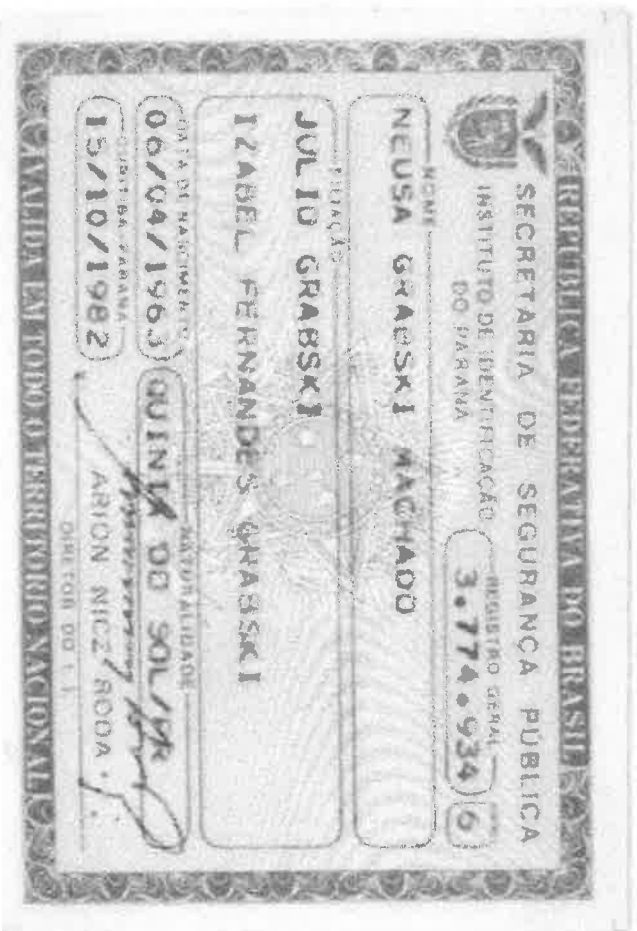 REPÚBLICA FEDERATIVA DO BRASIL
SECRETARIA DE SEGURANÇA PÚBLICA
INSTITUTO DE IDENTIFICAÇÃO
DO PARANÁ
REGISTRO GERAL
3.774.934 6
NOME
NEUSA GRABSKI MACHADO
FILIAÇÃO
JULIO GRABSKI
IZABEL FERNANDES GRABSKI
DATA DE NASCIMENTO
NATURALIDADE
06/04/1963
QUINTA DO SOL/PR
CURITIBA PARANÁ
15/10/1982
ARION NICZ RODA
DIRETOR DO I I
VÁLIDA EM TODO O TERRITÓRIO NACIONAL